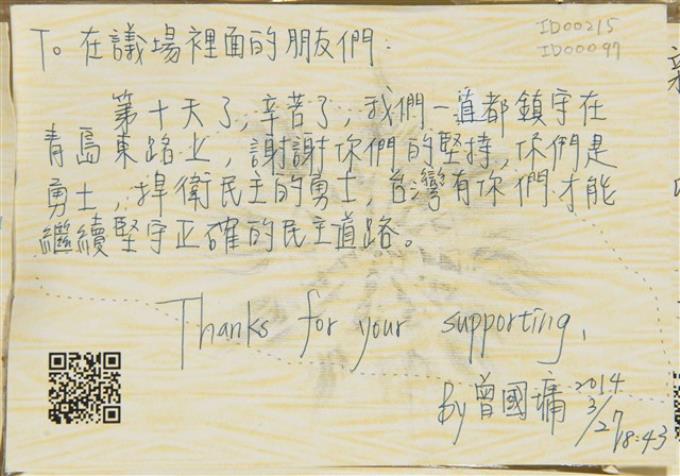 ID00215
ID00097
To 在議場裡面的朋友們：
第十天了，辛苦了，我們一直都鎮守在
青島東路上，謝謝你們的堅持，你們是
勇士，捍衛民主的勇士，台灣有你們才能
繼續堅守正確的民主道路。
Thanks for your supporting,
By 曾國墉 2014
3/27
18:43